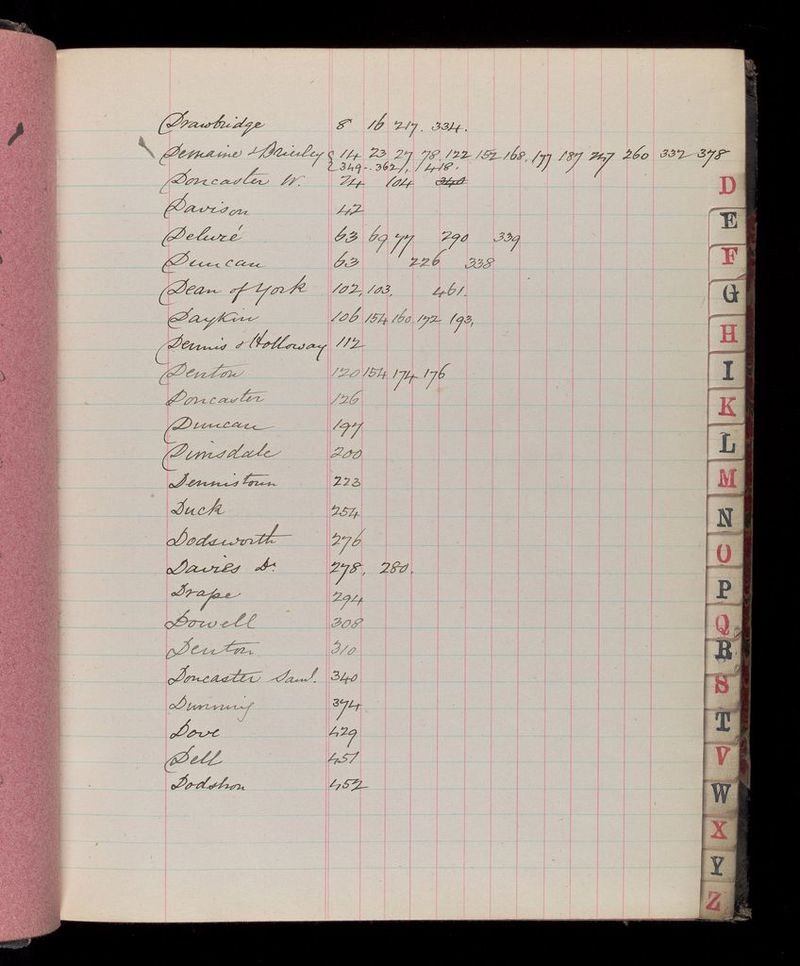 Drawbridge 8 16 217. 334.
Demaine & Brierley 14 23 27 78. 122 152 168. 177 187 247 260 332 378
349-.362/. 418.
Doncaster W. 24 104 340
Davison 42
Deluré 63 69 77 290 339
Duncan 63 226 338
Dean of York 102, 103. 461.
Daykin 106 154 160. 192 193,
Dennis & Holloway 112
Denton 120 154 174 176
Doncaster 126
Duncan 197
Dimsdale 200
Dennistoun 223
Duck 254
Dodsworth 276
Davies Dr 278, 280.
Drape 294
Dowell 308
Denton 310
Doncaster Saml. 340
Dunning 374
Dove 429
Dell 451
Dodshon 452
D
E
F
G
H
I
K
L
M
N
O
P
Q
R
S
T
V
W
X
Y
Z